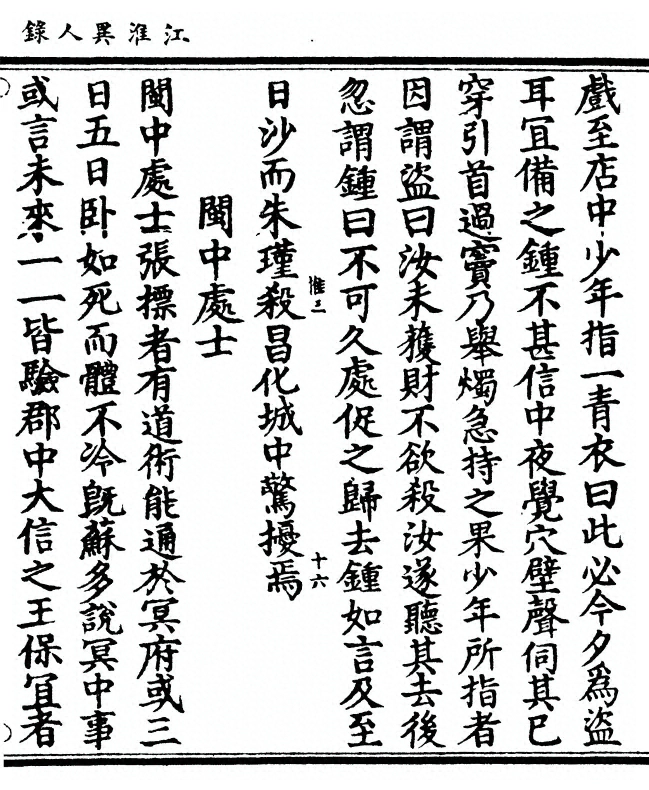 江淮異人錄
戲至店中少年指一青衣曰此必今夕為盜
耳宜備之鍾不甚信中夜覺穴壁聲伺其已
穿引首過竇乃舉燭急持之果少年所指者
因謂盜曰汝未獲財不欲殺汝遂聽其去後
忽謂鍾曰不可久處促之歸去鍾如言及至
惟三
十六
日沙而朱瑾殺昌化城中驚擾焉
閩中處士
閩中處士張標者有道術能通於冥府或三
日五日卧如死而體不冷旣蘇多說冥中事
或言未來一一皆驗郡中大信之王保冝者